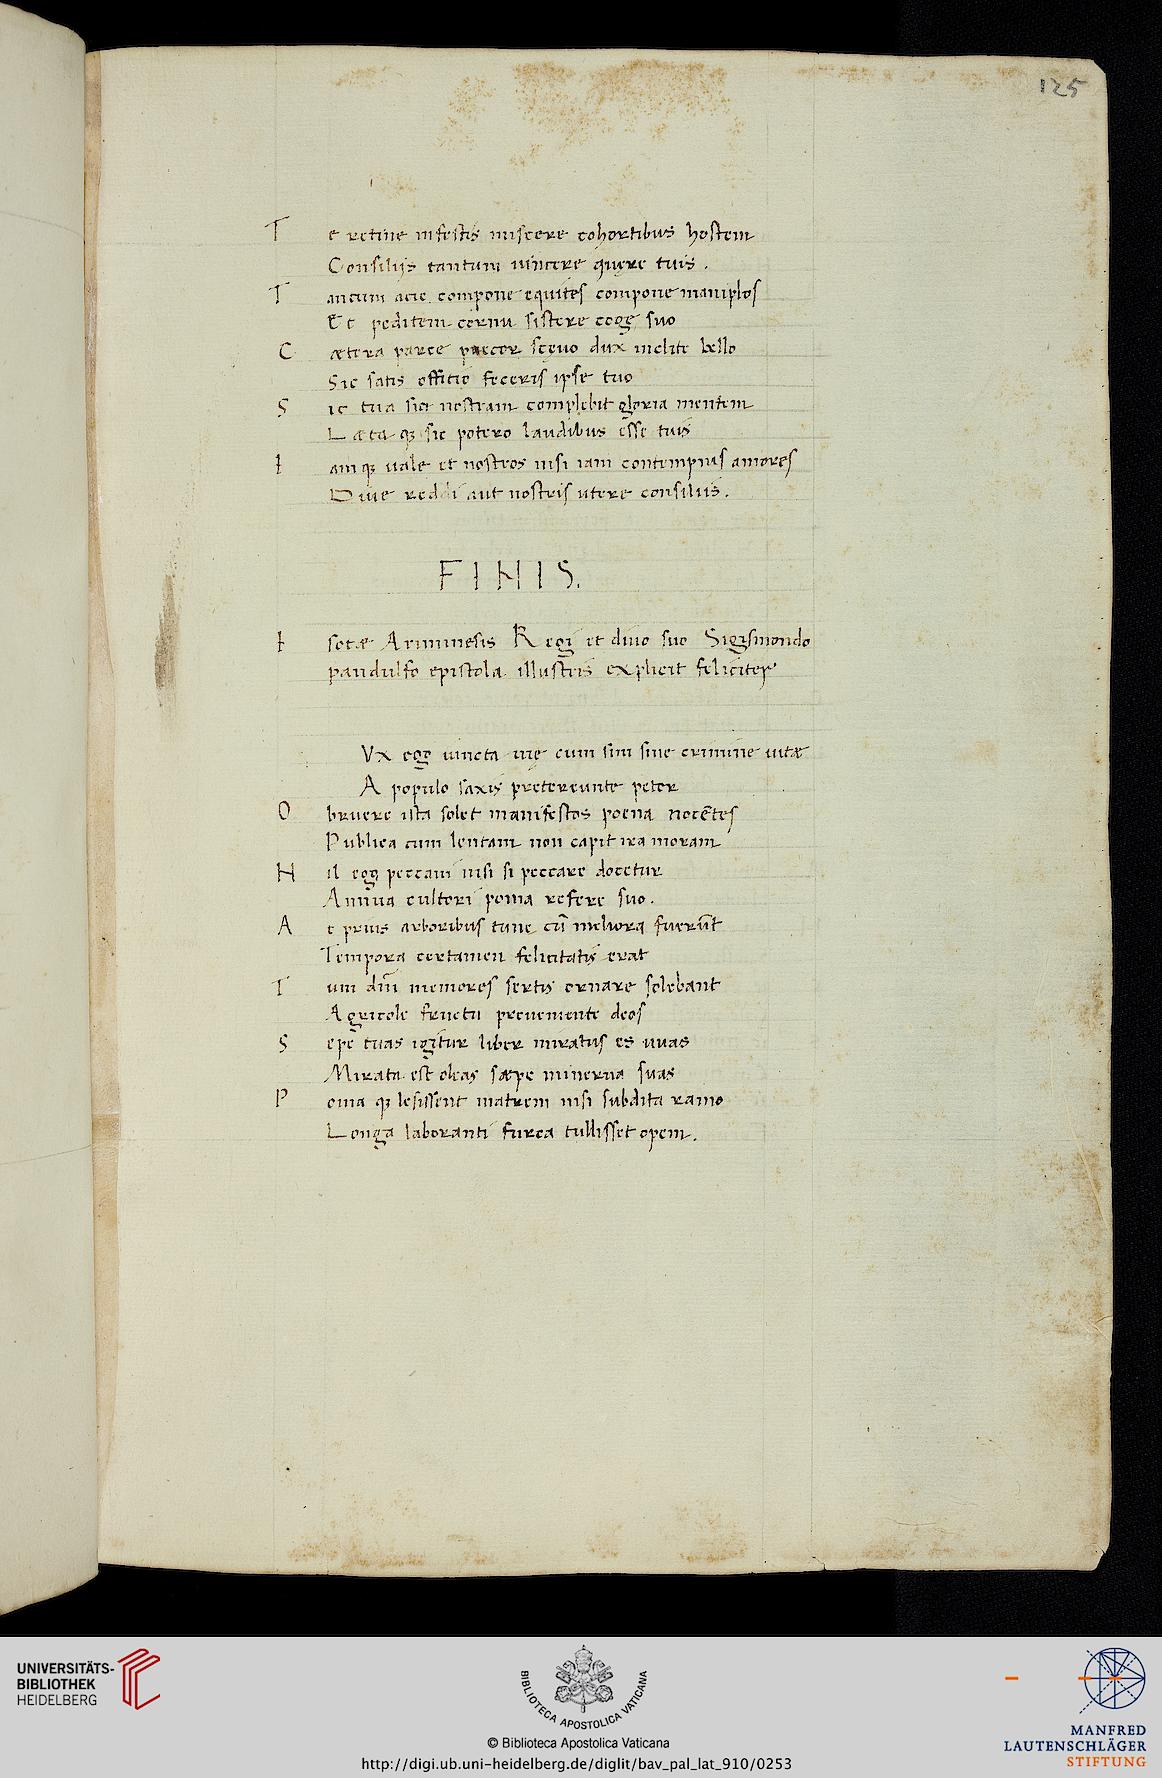 125
Te retine infestis miscere cohortibus hostem
Consilijs tantum uincere quęre tuis.
Tantum acie compone equites compone maniplos
Et peditem cornu sistere coge suo
Cætera parce precor sçeuo dux inclite bello
Sic satis offitio feceris ipse tuo
Sic tua sic nostram complebit gloria mentem
Læta qꝫ sic potero laudibus esse tuis
Iam qꝫ uale et nostros nisi iam contempnis amores
Diue reddi aut nostris utere consiliis.
FINIS.
Isotæ Ariminesis Regi et diuo suo Sigismondo
pandulfo epistola illustris explicit feliciter
Vx ego uincta uię cum sim sine crimine uitæ
A populo saxis pretereunte petor
Obruere ista solet manifestos poena nocẽtes
Publica cum lentam non capit ira moram
Nil ego peccaui nisi si peccare docetur
Annua cultori poma refere suo.
At prius arboribus tunc cũ meliora fuerũt
Tempora certamen felicitatis erat
Tum dm̃ memores sertis ornare solebant
Agricole fructu proueniente deos
Sepe tuas igitur liber miratus es uuas
Mirata est oleas sæpe minerua suas
Poma qꝫ lesissent matrem nisi subdita ramo
Longa laboranti furca tullisset opem.
UNIVERSITÄTS-
BIBLIOTHEK
HEIDELBERG
BIBLIOTECA APOSTOLICA VATICANA
© Biblioteca Apostolica Vaticana
http://digi.ub.uni-heidelberg.de/diglit/bav_pal_lat_910/0253
MANFRED
LAUTENSCHLÄGER
STIFTUNG